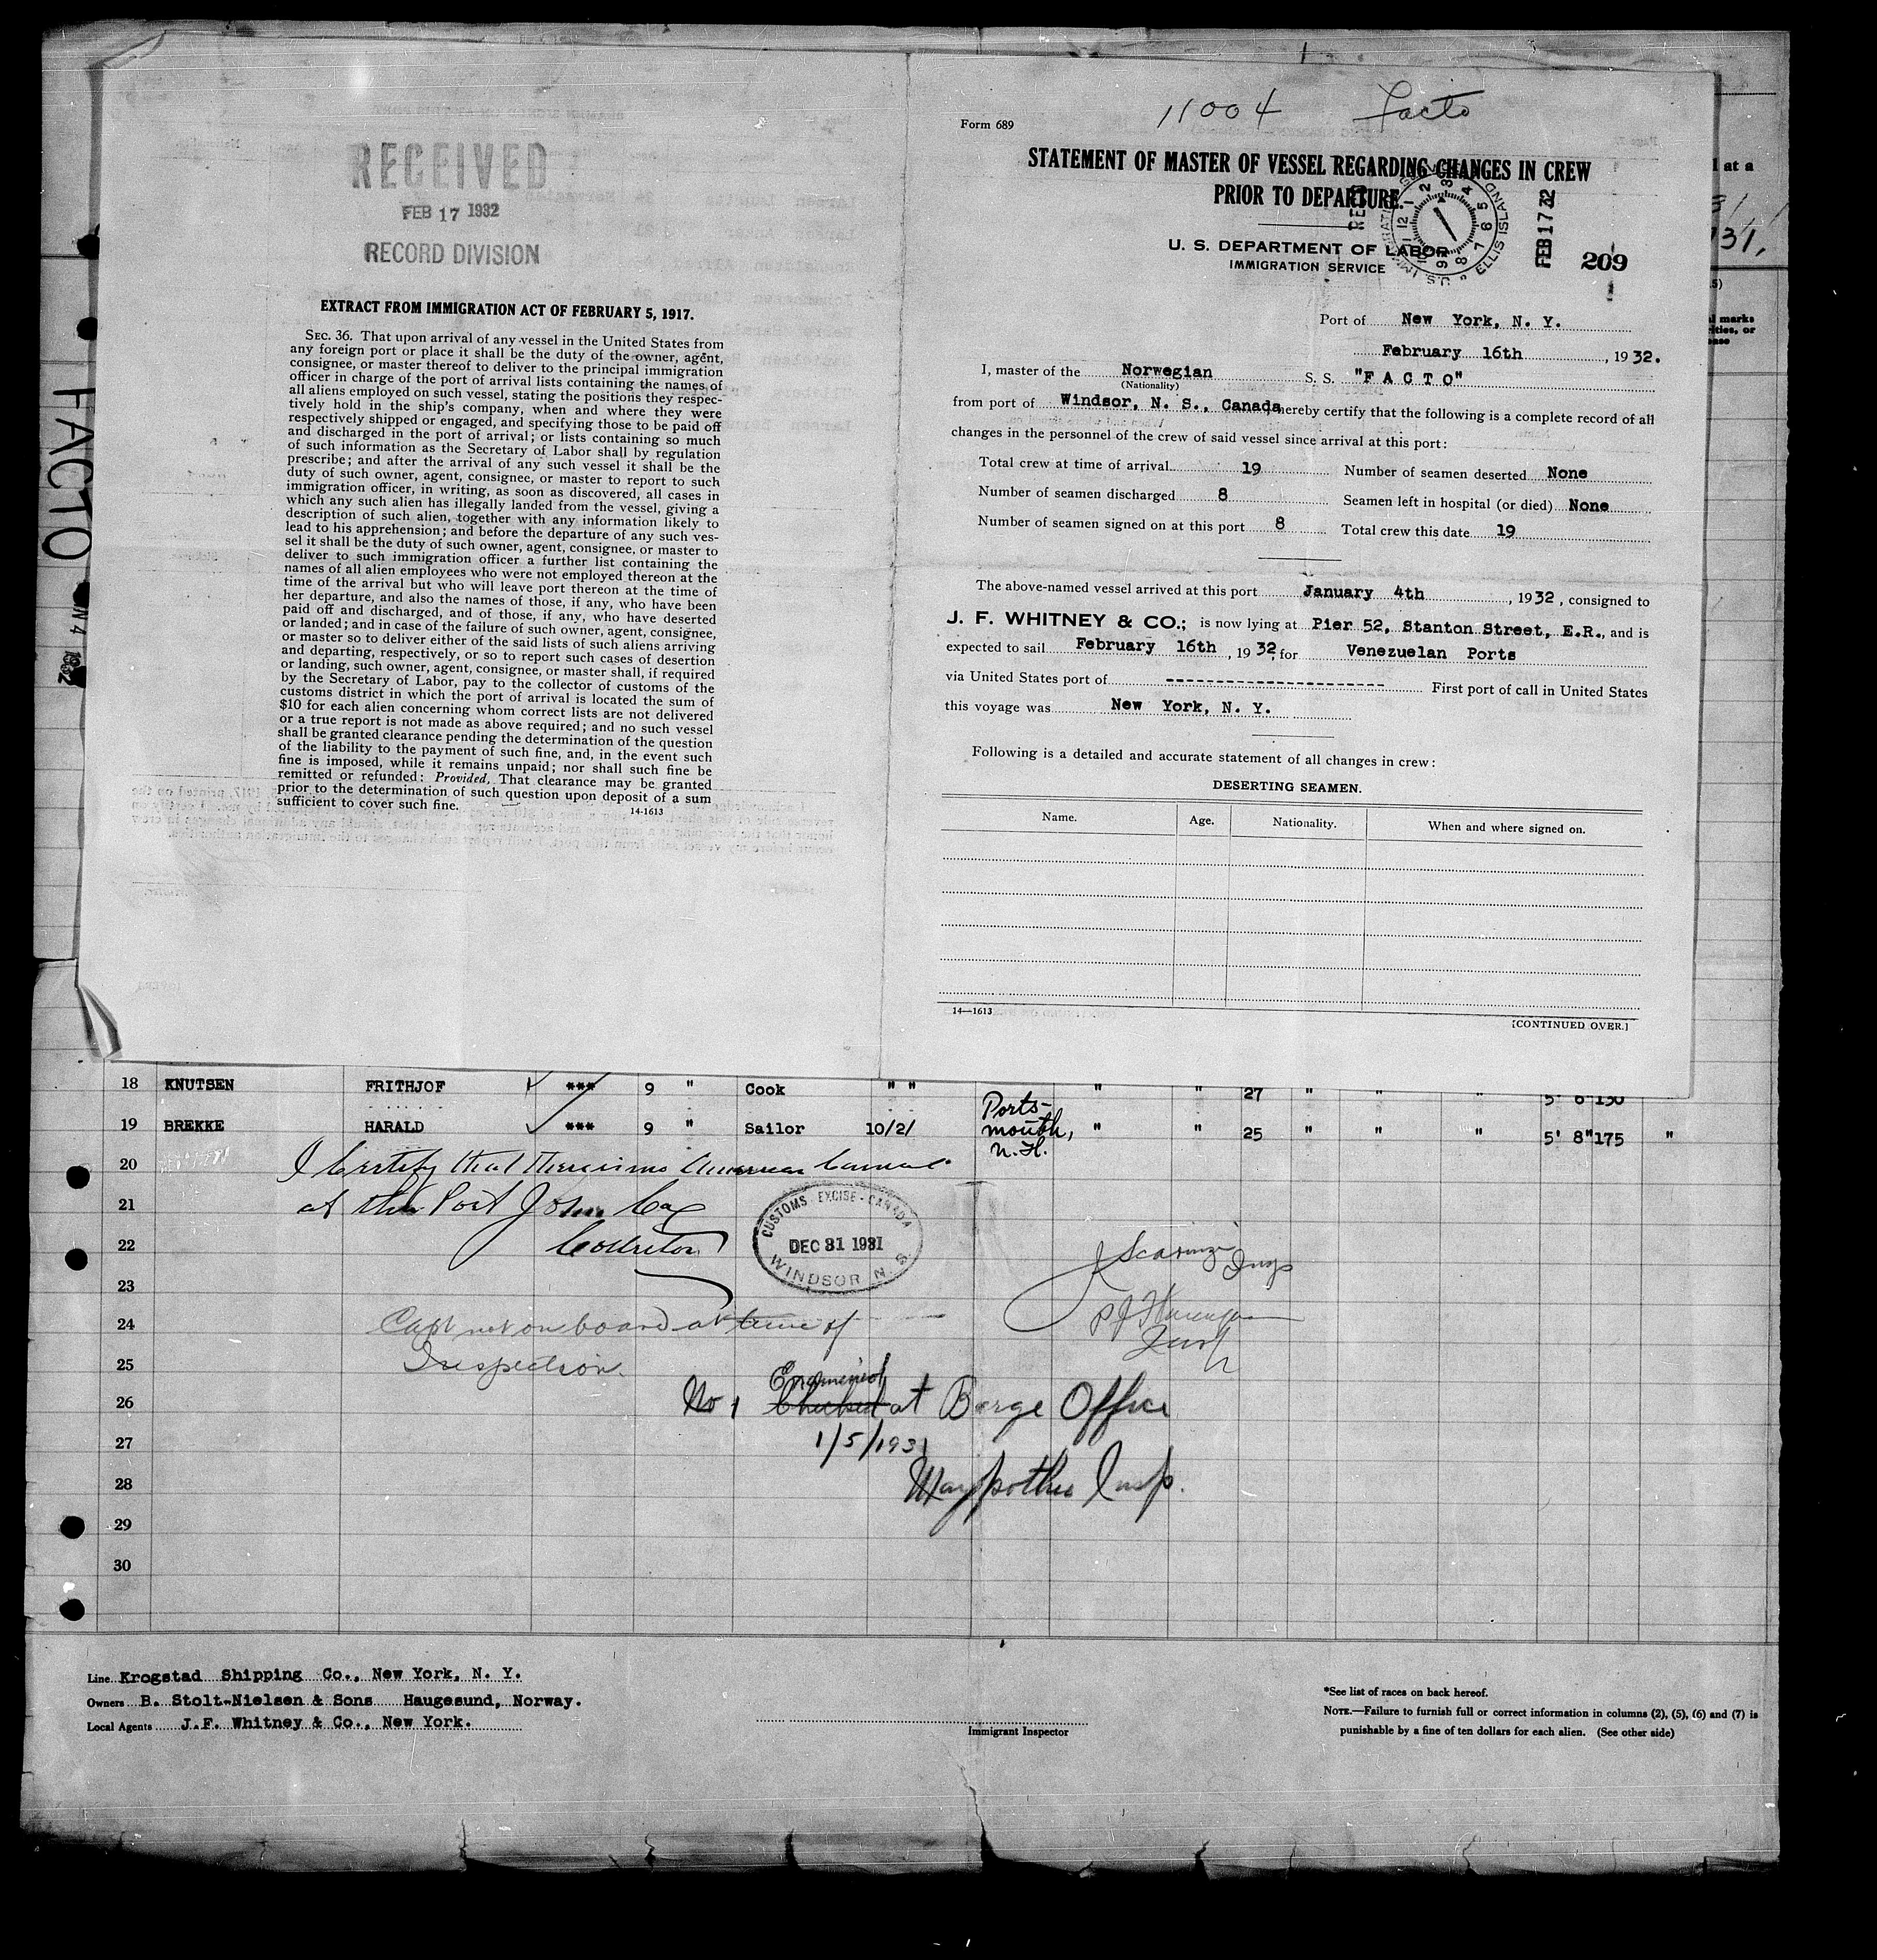 RECEIVED
FEB 17 1932
RECORD DIVISION
EXTRACT FROM IMMIGRATION ACT OF FEBRUARY 5, 1917.
SEC. 36. That upon arrival of any vessel in the United States from
any foreign port or place it shall be the duty of the owner, agent,
consignee, or master thereof to deliver to the principal immigration
officer in charge of the port of arrival lists containing the names of
all aliens employed on such vessel, stating the positions they respec-
tively hold in the ship's company, when and where they were
respectively shipped or engaged, and specifying those to be paid off
and discharged in the port of arrival; or lists containing so much
of such information as the Secretary of Labor shall by regulation
prescribe; and after the arrival of any such vessel it shall be the
duty of such owner, agent, consignee, or master to report to such
immigration officer, in writing, as soon as discovered, all cases in
which any such alien has illegally landed from the vessel, giving a
description of such alien, together with any information likely to
lead to his apprehension; and before the departure of any such ves-
sel it shall be the duty of such owner, agent, consignee, or master to
deliver to such immigration officer a further list containing the
names of all alien employees who were not employed thereon at the
time of the arrival but who will leave port thereon at the time of
her departure, and also the names of those, if any, who have been
paid off and discharged, and of those, if any, who have deserted
or landed; and in case of the failure of such owner, agent, consignee,
or master so to deliver either of the said lists of such aliens arriving
and departing, respectively, or so to report such cases of desertion
or landing, such owner, agent, consignee, or master shall, if required
by the Secretary of Labor, pay to the collector of customs of the
customs district in which the port of arrival is located the sum of
$10 for each alien concerning whom correct lists are not delivered
or a true report is not made as above required; and no such vessel
shall be granted clearance pending the determination of the question
of the liability to the payment of such fine, and, in the event such
fine is imposed, while it remains unpaid; nor shall such fine be
remitted or refunded: Provided, That clearance may be granted
prior to the determination of such question upon deposit of a sum
sufficient to cover such fine.
14-1613
11004 Facto
Form 689
STATEMENT OF MASTER OF VESSEL REGARDING CHANGES IN CREW
PRIOR TO DEPARTURE.
U. S. DEPARTMENT OF LABOR
IMMIGRATION SERVICE
ELLIS ISLAND
FEB 17 32
209
Port of New York, N. Y.
February 16th, 1932.
I, master of the Norwegian S. S. "F A C T O"
(Nationality)
from port of Windsor, N. S., Canada hereby certify that the following is a complete record of all
changes in the personnel of the crew of said vessel since arrival at this port:
Total crew at time of arrival 19 Number of seamen deserted None
Number of seamen discharged 8 Seamen left in hospital (or died) None
Number of seamen signed on at this port 8 Total crew this date 19
The above-named vessel arrived at this port January 4th, 1932, consigned to
J. F. WHITNEY & CO.; is now lying at Pier 52, Stanton Street, E.R., and is
expected to sail February 16th, 1932, for Venezuelan Ports
via United States port of -------------------- First port of call in United States
this voyage was New York, N. Y.
Following is a detailed and accurate statement of all changes in crew:
DESERTING SEAMEN.
Name. Age. Nationality. When and where signed on.
14—1613
[CONTINUED OVER.]
FACTO
18 KNUTSEN FRITHJOF *** 9 " Cook " " " " 27 " " " 5' 6" 150
19 BREKKE HARALD *** 9 " Sailor 10/2/ Ports-mouth, N.H. " " 25 " " " 5' 8" 175 "
20 I Certify that there is no American Consul
21 at this Port John Cox
22 Collector
CUSTOMS EXCISE - CANADA
DEC 31 1931
WINDSOR N. S.
23
24 Capt not on board at time of
25 Inspection.
26 No 1 Examined Checked at Barge Office
27 1/5/1931
28 Insp.
29
30
Line Krogstad Shipping Co., New York, N. Y.
Owners B. Stolt-Nielsen & Sons Haugesund, Norway.
Local Agents J.F. Whitney & Co., New York.
Immigrant Inspector
*See list of races on back hereof.
NOTE.—Failure to furnish full or correct information in columns (2), (5), (6) and (7) is
punishable by a fine of ten dollars for each alien. (See other side)